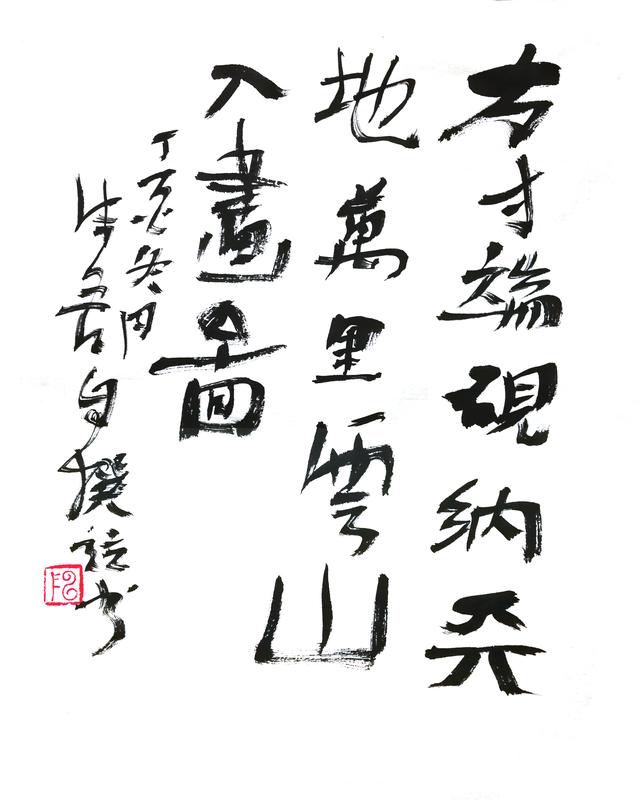 方寸端硯納天
地萬里雲山
入畫圖
丁亥冬月
自撰书